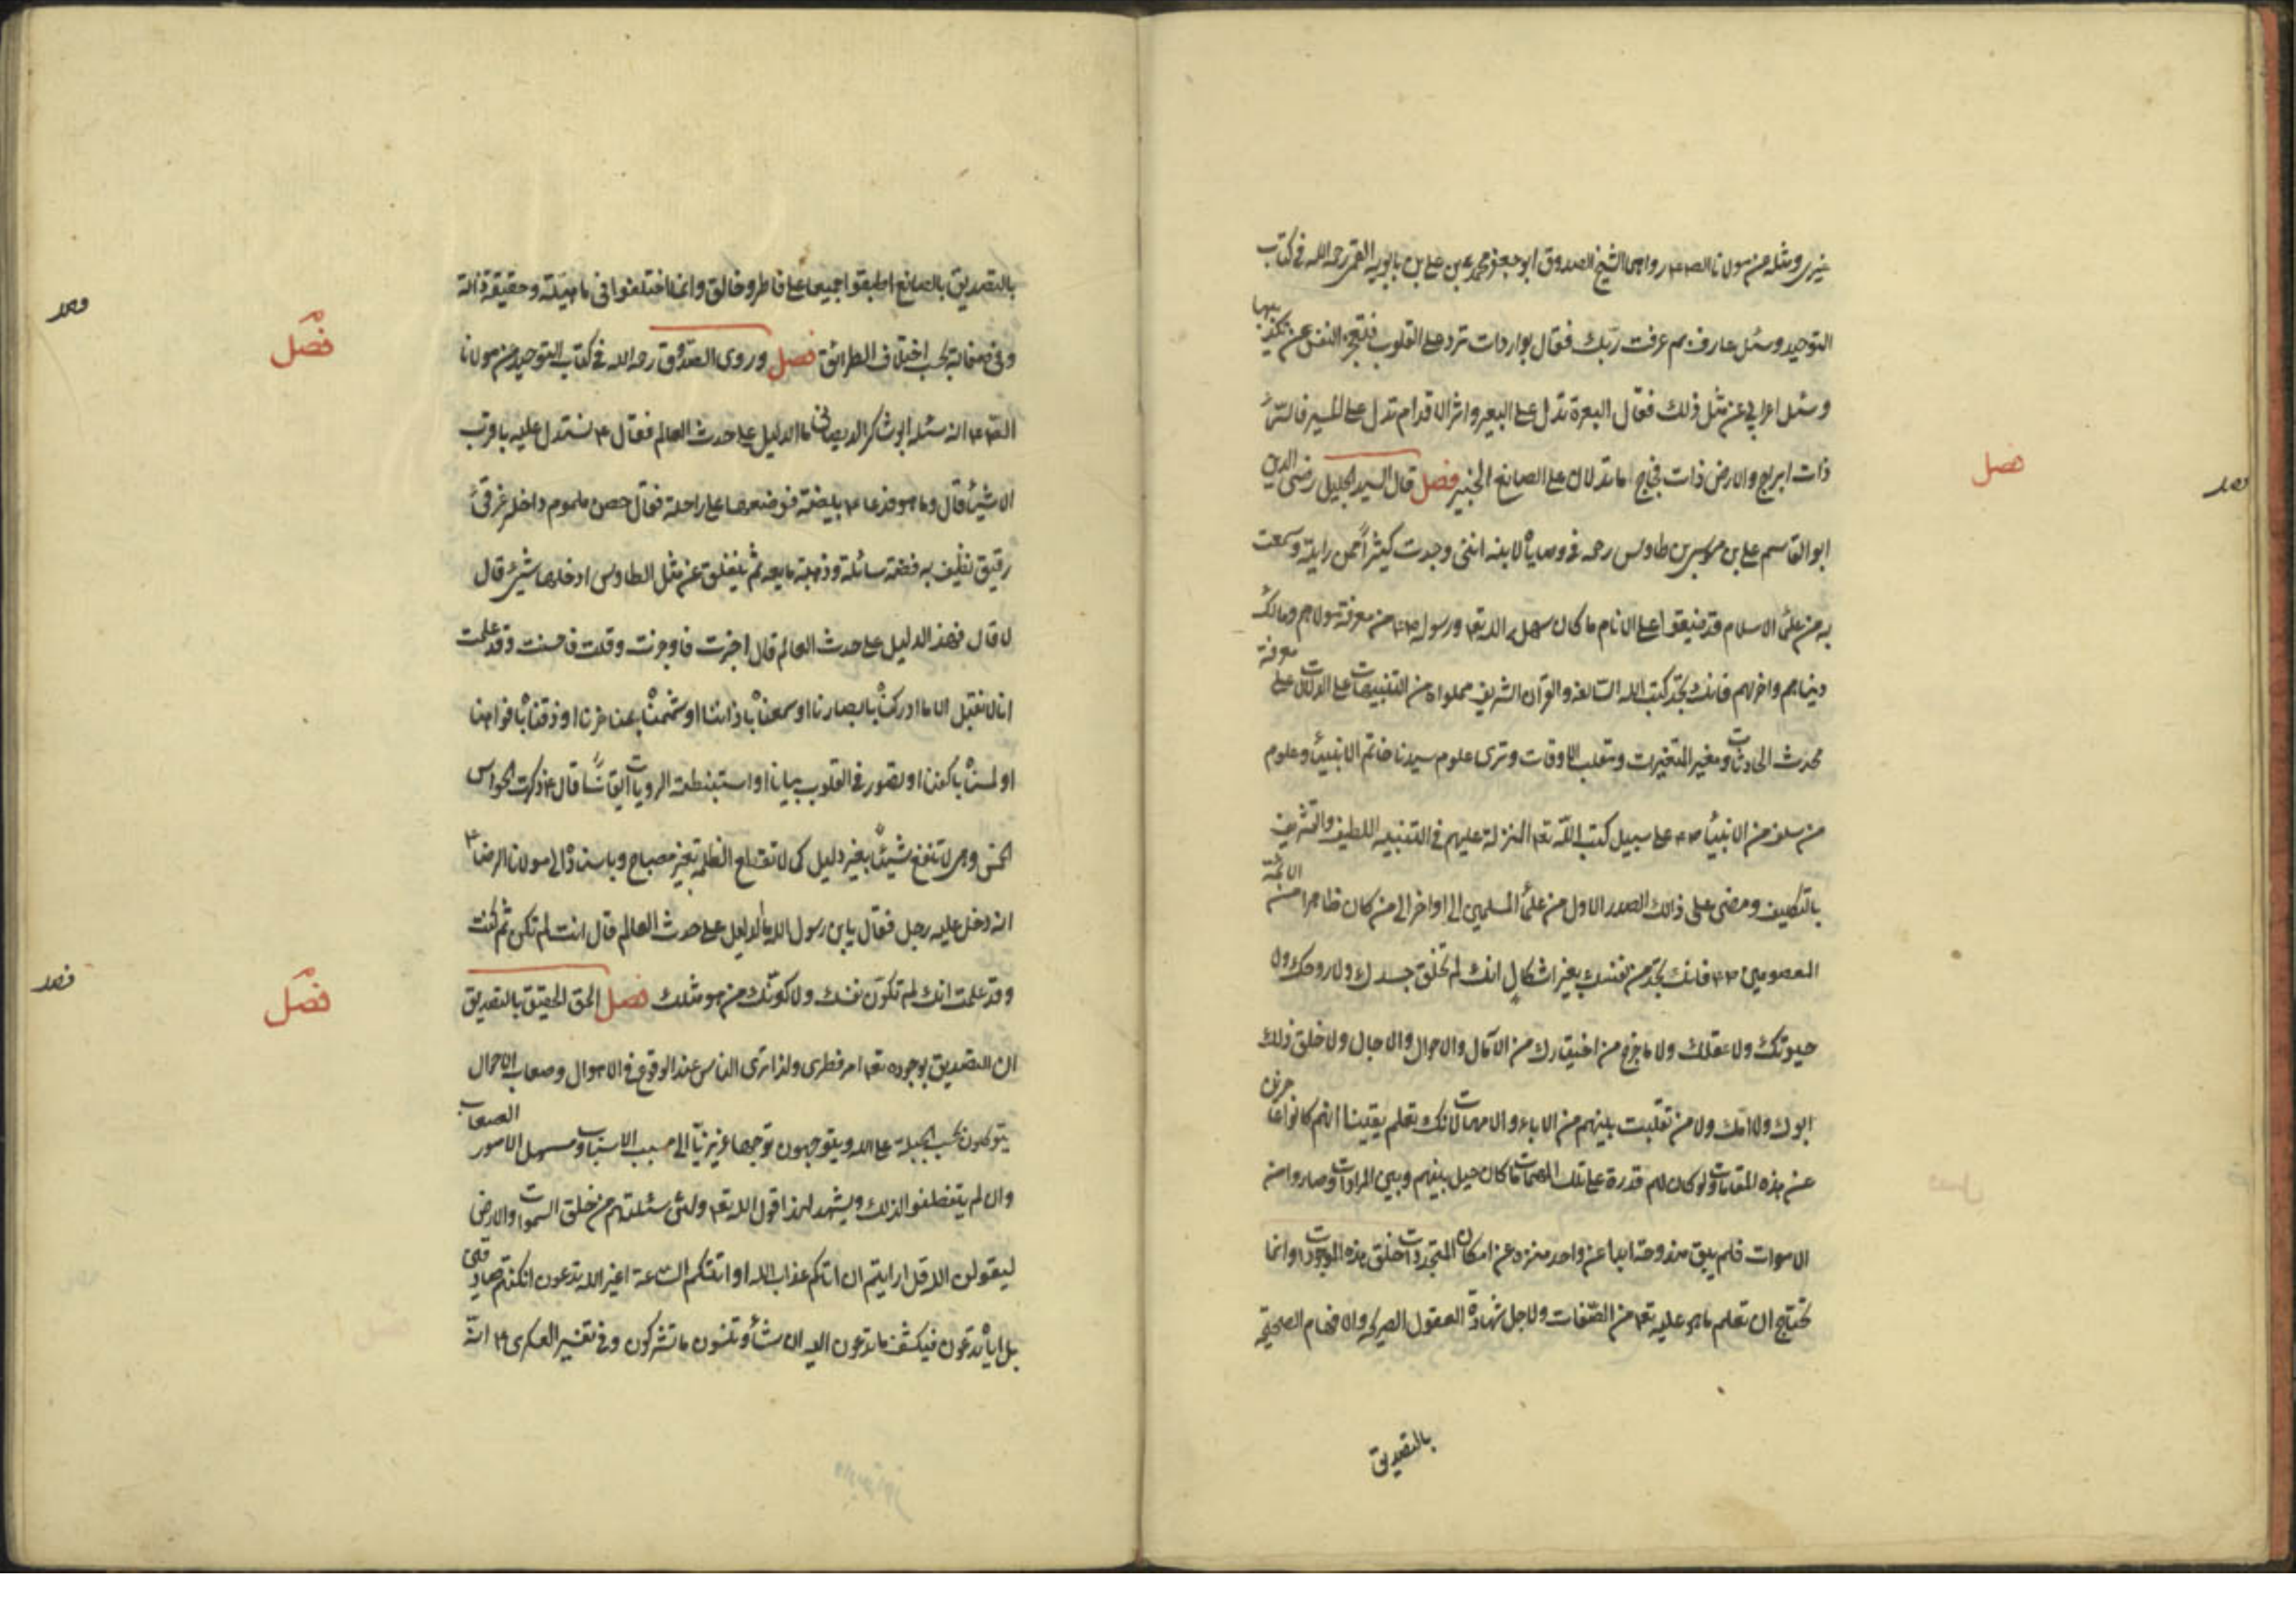 غيري ومثله عن مولانا الصـ ع رواهما الشيخ الصدوق ابو جعفر محمد بن علي بن بابويه القمي رحمه الله في كتاب
التوحيد وسئل عارف بم عرفت ربّك فقال بواردات ترد على القلوب فتعجز النفس عن تكذيبها
وسئل اعرابي عن مثل ذلك فقال البعرة تدل على البعير واثر الاقدام تدل على المسير فالسّماء
ذات ابراج والارض ذات فجاج اما تدلان على الصانع الخبير فصل قال السيد الجليل رضي الدين
ابو القاسم علي بن موسى بن طاوس رحمه في وصاياه لابنه انني وجدت كثيراً ممن رايته وسمعت
به من علماء الاسلام قد ضيقوا على الانام ما كان سهله الله تعـ ورسوله ص من معرفة مولاهم ومالك
دنياهم واخرتهم فانك تجد كتب الله السالفة والقرآن الشريف مملواة من التنبيهات على الدلالات على معرفة
محدث الحادثات ومغير المتغيرات ومقلب الاوقات وترى علوم سيدنا خاتم الانبياء وعلوم
من سلف من الانبياء ع على سبيل كتب اللّه تعـ المنزلة عليهم في التنبيه اللطيف والتشريف
بالتكليف ومضى على ذلك الصدر الاول من علماء المسلمين الى اواخر الى من كان ظاهرا من الائمة
المعصومين ع فانك تجد من نفسك بغير اشكال انك لم تخلق جسدك ولا روحك ولا
حيوتك ولا عقلك ولا ما خرج من اختيارك من الآمال والاحوال والاجال ولا خلق ذلك
ابوك ولا امّك ولا من تقلبت بينهم من الاباء والامهات لانك تعلم يقينا انهم كانوا عاجزين
عن هذه المقامات ولو كان لهم قدرة على تلك المهمات ما كان حيل بينهم وبين المرادات وصاروا من
الاموات فلم يبق مندوحة ابدا عن واحد منزه عن امكان المتجددات خلق هذه الموجودات وانما
تحتاج ان تعلم ما هو عليه تعـ من الصّفات ولاجل شهادة العقول الصريحة والافهام الصحيحة
بالتصديق
بالتصديق بالصانع اطبقوا جميعا على فاطر وخالق وانما اختلفوا في ماهيّته وحقيقة ذاته
وفي صفاته بحسب اختلاف الطرائق فصل وروى الصّدوق رحمه الله في كتاب التوحيد عن مولانا
فصل
الصـ ع انه سئله ابو شاكر الديصاني ما الدليل على حدث العالم فقال ع نستدل عليه باقرب
الاشياء قال وما هو فدعا ع ببيضة فوضعها على راحته فقال حصن ملموم داخله غرقئ
رقيق تطيف به فضة سائلة وذهبة مايعة ثم تنفلق عن مثل الطاوس ادخلها شيء قال
لا قال فهذا الدليل على حدث العالم قال اخبرت فاوجزت وقلت فاحسنت وقد علمت
انا لا نقبل الا ما ادركناه بابصارنا او سمعناه باذاننا او شممناه بمناخرنا او ذقناه بافواهنا
او لمسناه باكفنا او تصور في القلوب بيانا او استنبطته الرويات ايقانا قال ع ذكرت الحواس
الخمس وهي لا تنفع شيئاً بغير دليل كما لا تقطع الظلمة بغير مصباح وباسناده الى مولانا الرضا ع
انه دخل عليه رجل فقال يابن رسول الله ما الدليل على حدث العالم قال انت لم تكن ثم كنت
وقد علمت انك لم تكوّن نفسك ولا كوّنك من هو مثلك فصل الحق الحقيق بالتصديق
فصل
ان التصديق بوجوده تعـ امر فطري ولذا ترى الناس عند الوقوع في الاهوال وصعاب الاحوال
يتوكلون بحسب الجبلة على الله ويتوجهون توجها غريزيّا الى مسبب الاسباب ومسهل الامور الصعاب
وان لم يتفطنوا لذلك ويشهد لهذا قول الله تعـ ولئن سئلتهم من خلق السموات والارض
ليقولن الله قل ارايتم ان اتاكم عذاب الله او اتتكم الساعة اغير الله تدعون ان كنتم صادقين
بل اياه تدعون فيكشف ما تدعون اليه ان شاء وتنسون ما تشركون وفي تفسير العسكري ع انّه
فصل